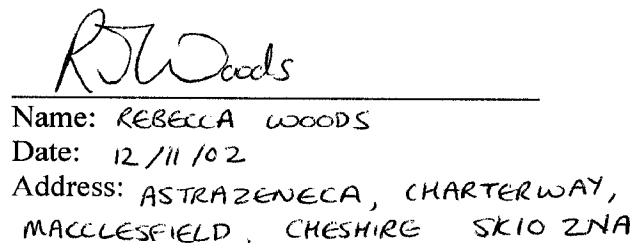 RJWoods
Name: REBECCA WOODS
Date: 12/11/02
Address: ASTRAZENECA, CHARTERWAY,
MACCLESFIELD, CHESHIRE SK10 2NA